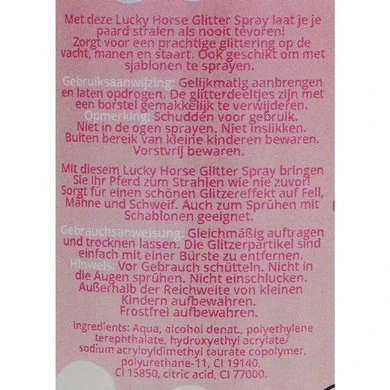 Met deze Lucky Horse Glitter Spray laat je je
paard stralen als nooit tevoren!
Zorgt voor een prachtige glittering op de
vacht, manen en staart. Ook geschikt om met
sjablonen te sprayen.
Gebruiksaanwijzing: Gelijkmatig aanbrengen
en laten opdrogen. De glitterdeeltjes zijn met
een borstel gemakkelijk te verwijderen.
Opmerking: Schudden voor gebruik.
Niet in de ogen sprayen. Niet inslikken.
Buiten bereik van kleine kinderen bewaren.
Vorstvrij bewaren.
Mit diesem Lucky Horse Glitter Spray bringen
Sie Ihr Pferd zum Strahlen wie nie zuvor!
Sorgt für einen schönen Glitzereffekt auf Fell,
Mähne und Schweif. Auch zum Sprühen mit
Schablonen geeignet.
Gebrauchsanweisung: Gleichmäßig auftragen
und trocknen lassen. Die Glitzerpartikel sind
einfach mit einer Bürste zu entfernen.
Hinweis: Vor Gebrauch schütteln. Nicht in
die Augen sprühen. Nicht einschlucken.
Außerhalb der Reichweite von kleinen
Kindern aufbewahren.
Frostfrei aufbewahren.
Ingredients: Aqua, alcohol denat., polyethylene
terephthalate, hydroxyethyl acrylate/
sodium acryloyldimethyl taurate copolymer,
polyurethane-11, CI 19140,
CI 15850, citric acid, CI 77000.